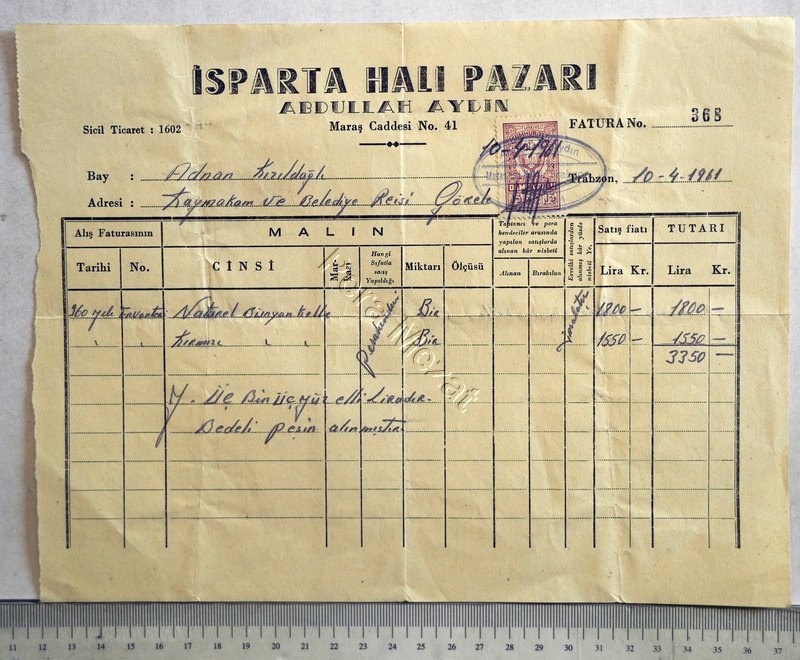 İSPARTA HALI PAZARI
ABDULLAH AYDIN
Sicil Ticaret : 1602
Maraş Caddesi No. 41
FATURA No. 368
10-4-1961
Bay : Adnan Kızıldağlı
Trabzon, 10-4-1961
Adresi : Kaymakam ve Belediye Reisi Görele
Alış Faturasının
MALIN
Toptancı ve pera kendeciler arasında yapılan satışlarda alınan kâr nisbeti
Evvelki satışlardan alınmış kâr yüzde nisbeti Yr.
Satış fiatı
TUTARI
Tarihi No. CİNSİ Markası Hangi Sıfatla satış Yapıldığı Miktarı Ölçüsü Alınan Bırakılan Lira Kr. Lira Kr.
960 yılı Envanter Naturel Bünyan Kelle Perakende Bir 1800 — 1800 —
" " Kırmızı " " Bir 1550 — 1550 —
3350 —
Y. Üç Bin Üçyüz elli Liradır.
Bedeli peşin alınmıştır
Pera Mezat
11 12 13 14 15 16 17 18 19 20 21 22 23 24 25 26 27 28 29 30 31 32 33 34 35 36 37